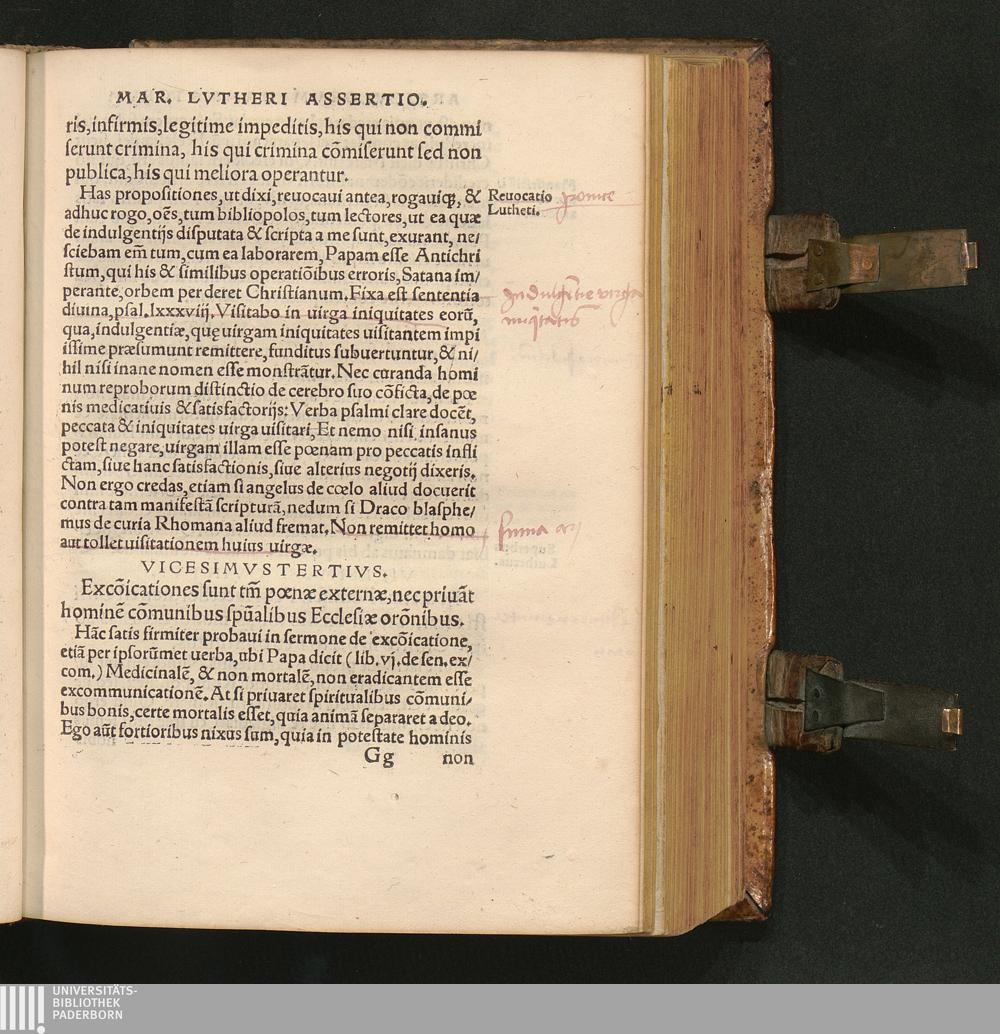 MAR. LVTHERI ASSERTIO.
ris,infirmis,legitime impeditis,his qui non commi
ſerunt crimina, his qui crimina cõmiſerunt ſed non
publica,his qui meliora operantur.
Has propoſitiones,ut dixi,reuocaui antea,rogauiqꝫ, &
adhuc rogo,oẽs,tum bibliopolos,tum lectores,ut ea quæ
de indulgentijs diſputata & ſcripta a me ſunt,exurant, ne/
ſciebam em̃ tum,cum ea laborarem,Papam eſſe Antichri
ſtum,qui his & ſimilibus operatiõibus erroris,Satana im/
perante,orbem per deret Chriſtianum.Fixa eſt ſententia
diuina,pſal.lxxxviij.Viſitabo in uirga iniquitates eorũ,
qua,indulgentiæ,quę uirgam iniquitates uiſitantem impi
iſſime præſumunt remittere,funditus ſubuertuntur,& ni/
hil niſi inane nomen eſſe monſtrãtur.Nec curanda homi
num reproborum diſtinctio de cerebro ſuo cõficta,de pœ
nis medicatiuis & ſatisfactorijs: Verba pſalmi clare docẽt,
peccata & iniquitates uirga uiſitari,Et nemo niſi inſanus
poteſt negare,uirgam illam eſſe pœnam pro peccatis infli
ctam,ſiue hanc ſatisfactionis,ſiue alterius negotij dixeris.
Non ergo credas,etiam ſi angelus de cœlo aliud docuerit
contra tam manifeſtã ſcripturã,nedum ſi Draco blaſphe/
mus de curia Rhomana aliud fremat.Non remittet homo
aut tollet uiſitationem huius uirgæ.
VICESIMVSTERTIVS.
Excõicationes ſunt tm̃ pœnæ externæ,nec priuãt
hominẽ cõmunibus ſpũalibus Eccleſiæ orõnibus.
Hãc ſatis firmiter probaui in ſermone de excõicatione,
etiã per ipſorũmet uerba,ubi Papa dicit (lib.vj.de ſen.ex/
com.) Medicinalẽ, & non mortalẽ,non eradicantem eſſe
excommunicationẽ.At ſi priuaret ſpiritualibus cõmuni/
bus bonis,certe mortalis eſſet,quia animã ſepararet a deo.
Ego aũt fortioribus nixus ſum,quia in poteſtate hominis
Gg non
Reuocatio
Lutheti.
Indulgẽtie virga
UNIVERSITÄTS-
BIBLIOTHEK
PADERBORN